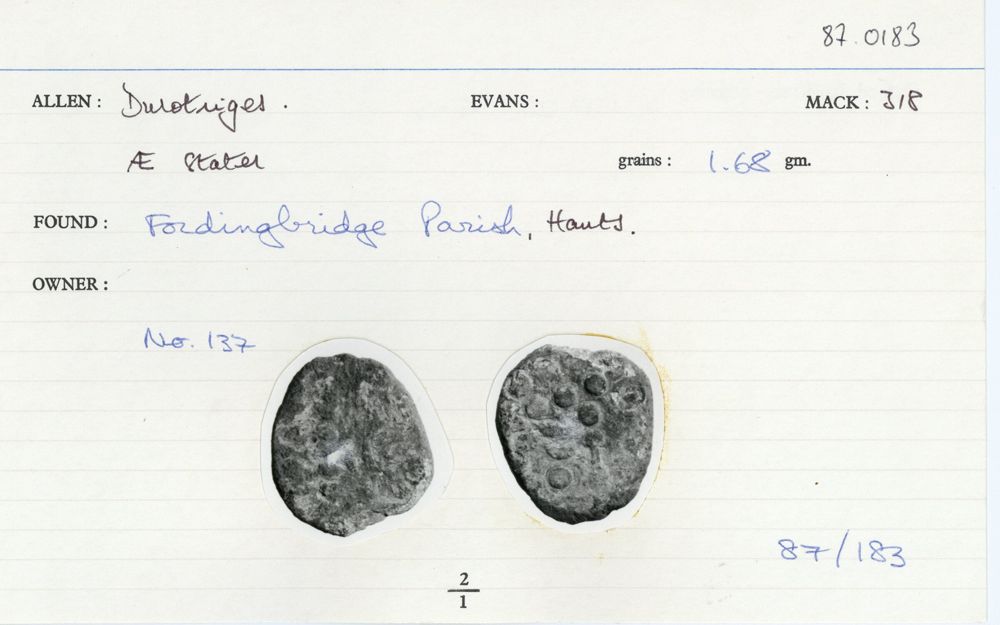 87.0183
ALLEN : Durotriges . EVANS : MACK : 318
Æ Stater grains : 1.68 gm.
FOUND : Fordingbridge Parish, Hants.
OWNER :
No. 137
87/183
2
1